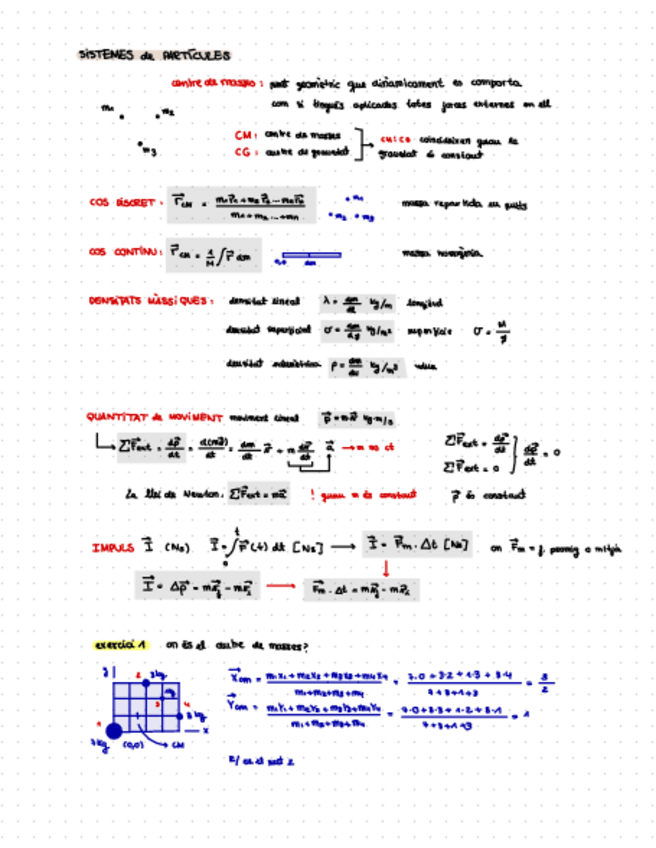 SISTEMES de PARTÍCULES
centre de masses : punt geomètric que dinàmicament es comporta
com si tingués aplicades totes forces externes en ell
m₁ m₂ m₃
CM : centre de masses
CG : centre de gravetat
CM i CG coincideixen quan la gravetat és constant
COS DISCRET : r⃗CM = (m₁r⃗₁ + m₂r⃗₂ ... mₙr⃗ₙ) / (m₁ + m₂ ... + mn) m₁ m₂ m₃ massa repartida en punts
COS CONTINU : r⃗CM = 1/M ∫ r⃗ dm dm massa homogènia
DENSITATS MÀSSIQUES : densitat lineal λ = dm/dl kg/m longitud
densitat superficial σ = kg/m² superfície σ = M/
densitat ρ = dm/dv kg/m³ volum
QUANTITAT de MOVIMENT moviment lineal p⃗ = m v⃗ kg·m/s
ΣF⃗ext = dp⃗/dt = d(mv⃗)/dt = dm/dt v⃗ + m dv⃗/dt a⃗ → m no ct
ΣF⃗ext = dp⃗/dt
ΣF⃗ext = 0
dp⃗/dt = 0
2a llei de Newton : ΣF⃗ext = ma⃗ ! quan m és constant p⃗ és constant
IMPULS I⃗ (Ns) I⃗ = ∫₀ᵗ F⃗(t) dt [Ns] → I⃗ = F⃗m · Δt [Ns] on F⃗m = f. promig o mitja
I⃗ = Δp⃗ = mv⃗f - mv⃗i → F⃗m · Δt = mv⃗f - mv⃗i
exercici 1 on és el centre de masses?
y 2 3kg
1kg
3 4
3kg
1 x
7kg (0,0) CM
X⃗cm = (m₁x₁ + m₂x₂ + m₃x₃ + m₄x₄) / (m₁+m₂+m₃+m₄) = (7·0 + 3·2 + 1·3 + 3·4) / (7+3+1+3) = 3/2
Y⃗cm = (m₁y₁ + m₂y₂ + m₃y₃ + m₄y₄) / (m₁+m₂+m₃+m₄) = (7·0 + 3·3 + 1·2 + 3·1) / (7+3+1+3) = 1
R/ en el punt 2